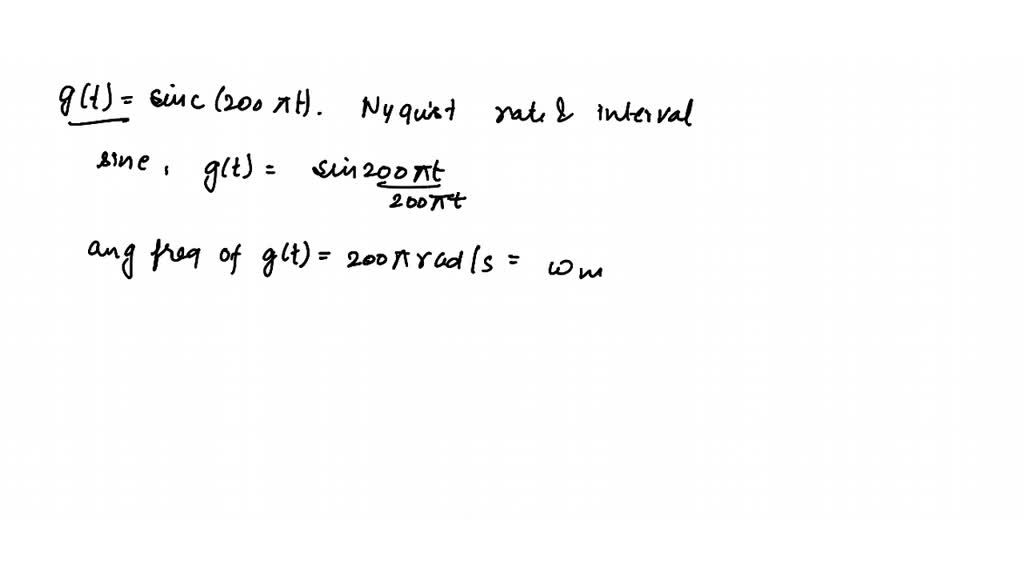 g(t) = sinc (200 πt). Nyquist rate & interval
sine, g(t) = sin 200πt
200πt
ang freq of g(t) = 200π rad/s = ωm